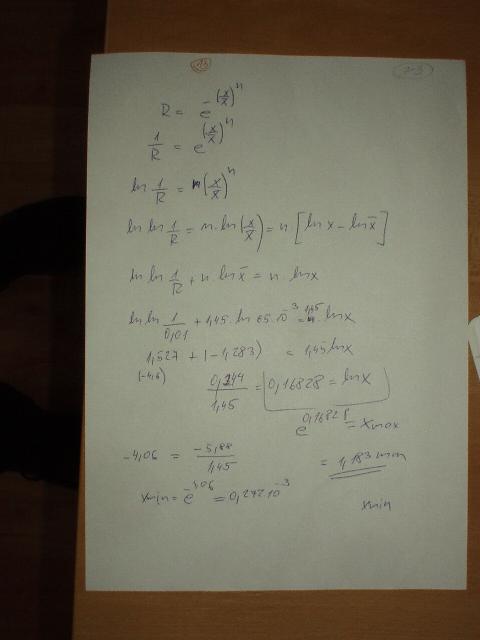 13
23
R = e^-(x/x̄)^n
1/R = e^(x/x̄)^n
ln 1/R = (x/x̄)^n
ln ln 1/R = n·ln(x/x̄) = n [ln x - ln x̄]
ln ln 1/R + n·ln x̄ = n·ln x
ln ln 1/0,01 + 1,45·ln 65·10^-3 = 1,45 ln x
1,527 + (-1,283) = 1,45 ln x
(-4,6)
0,244/1,45 = 0,16828 = ln x
e^0,16828 = xmax
-4,06 = -5,88/1,45
= 1,183 mm
xmin = e^-4,06 = 0,2 10^-3
xmin